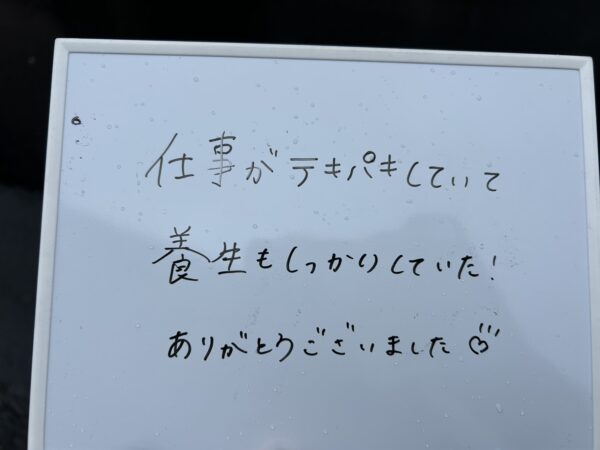 仕事がテキパキしていて
養生もしっかりしていた!
ありがとうございました♡